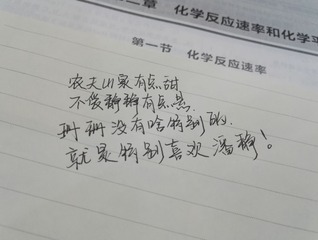 第二章 化学反应速率和化学平
第一节 化学反应速率
农夫山泉有点甜
不傻静静有点黑
珊珊没有啥特别的.
就是特别喜欢潘静!